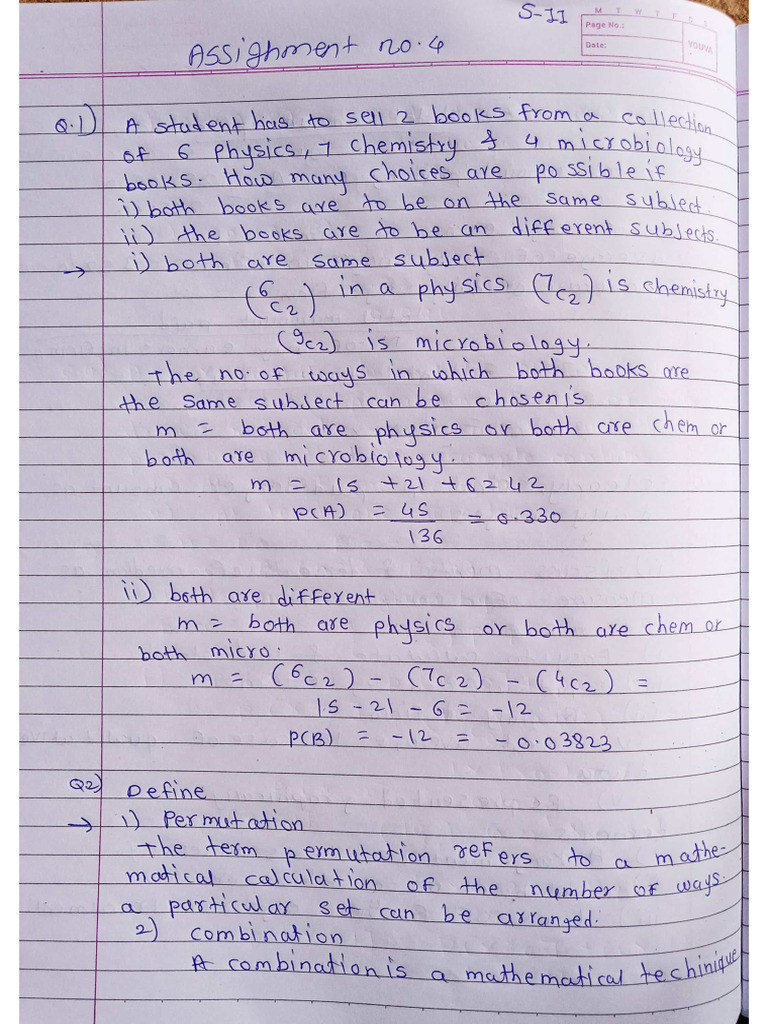 S-II
M T W T F S S
Page No.:
Date:
YOUVA
Assighment no.4
Q.1) A student has to sell 2 books from a collection
of 6 physics, 7 chemistry & 4 microbiology
books. How many choices are possible if
i) both books are to be on the same subject.
ii) the books are to be an different subjects.
→ i) both are same subject
(6C2) in a physics (7C2) is chemistry
(9C2) is microbiology.
The no. of ways in which both books are
the same subject can be chosen is
m = both are physics or both are chem or
both are microbiology.
m = 15 + 21 + 6 2 42
P(A) = 45/136 = 0.330
ii) both are different
m = both are physics or both are chem or
both micro.
m = (6C2) - (7C2) - (4C2) =
15 - 21 - 6 = -12
P(B) = -12 = -0.03823
Q2) Define
→ 1) Permutation
The term permutation refers to a mathe-
matical calculation of the number of ways.
a particular set can be arranged.
2) combination
A combination is a mathematical techinique